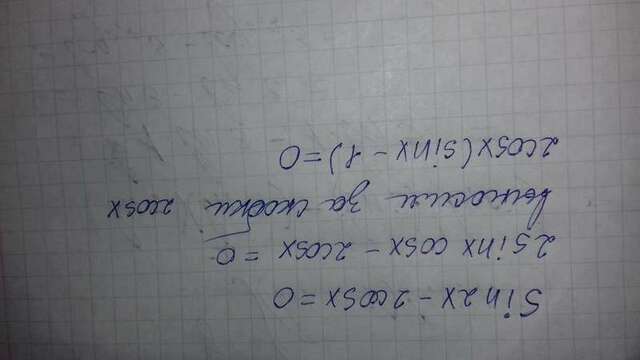 Sin2x - 2cosx = 0
2sinx cosx - 2cosx = 0
выносим за скобки 2cosx
2cosx(sinx - 1) = 0